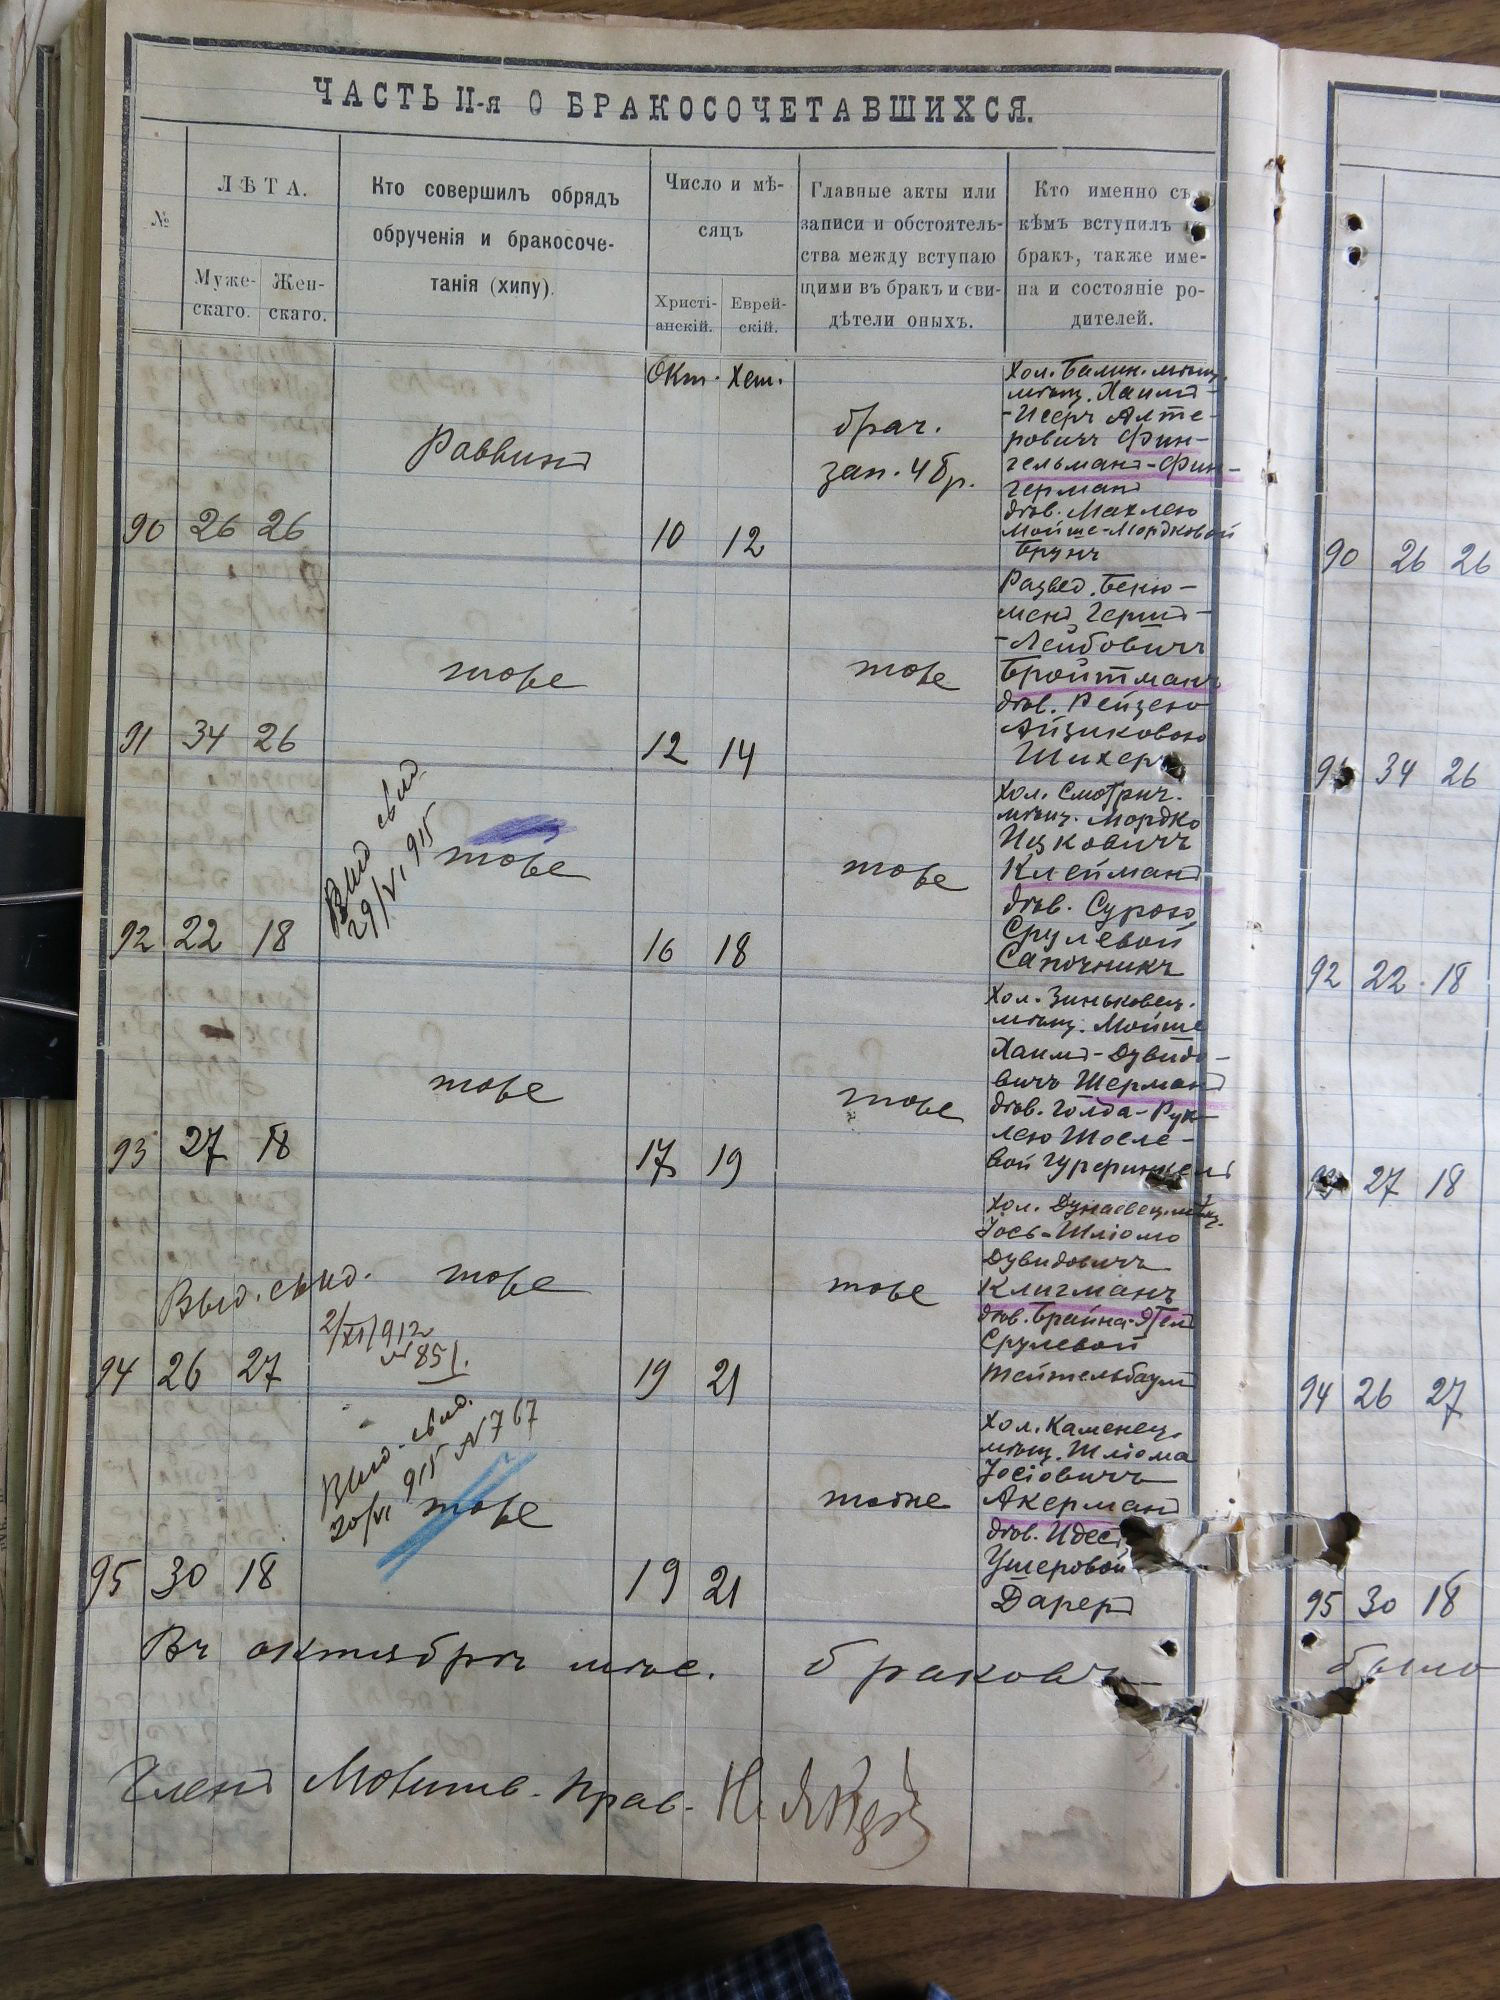 ЧАСТЬ II-я О БРАКОСОЧЕТАВШИХСЯ.
№
ЛѢТА.
Муже-
скаго.
Жен-
скаго.
Кто совершилъ обрядъ
обрученія и бракосоче-
танія (хипу).
Число и мѣ-
сяцъ
Христі-
анскій.
Еврей-
скій.
Главные акты или
записи и обстоятель-
ства между вступаю
щими въ бракъ и сви-
дѣтели оныхъ.
Кто именно съ
кѣмъ вступилъ
бракъ, также име-
на и состояніе ро-
дителей.
Окт. Хеш.
90 26 26
Раввинъ
10 12
брач.
зап. 4 бр.
Хол. Балин. мѣщ.
мѣщ. Хаимъ-
-Исеръ Алте-
ровичъ Фин-
гельманъ-Фин-
германъ
дѣв. Махлею
Мойше-Мордковой
Брунъ
91 34 26
тоже
12 14
тоже
Развед. Беню-
менъ Гершъ-
-Лейбовичъ
Бройтманъ
дѣв. Рейзею
Айзиковою
Шихеръ
92 22 18
Выд свид
29/VI 915
тоже
16 18
тоже
Хол. Смотрич.
мѣщ. Мордко
Ицковичъ
Клейманъ
дѣв. Сурою
Срулевой
Сапочникъ
93 27 18
тоже
17 19
тоже
Хол. Зиньковец.
мѣщ. Мойше
Хаимъ-Дувидо-
вичъ Шерманъ
дѣв. Голда-Рух-
лею Иосле-
вой
94 26 27
Выд. свид.
2/XI 912
№ 851.
тоже
19 21
тоже
Хол. Дунаевец. мѣщ.
Іось-Шліомо
Дувидовичъ
Клигманъ
дѣв. Брайна-Этель
Срулевой
Тейтельбаумъ
95 30 18
Выд. свид.
20/VI 915 № 767
тоже
19 21
тоже
Хол. Каменец.
мѣщ. Шліома
Іосіовичъ
Акерманъ
дѣв. Идес
Ушеровой
Дареръ
Въ октябрѣ мѣс. браковъ
Членъ Молитв. Прав.
90 26 26
34 26
92 22 18
27 18
94 26 27
95 30 18
было